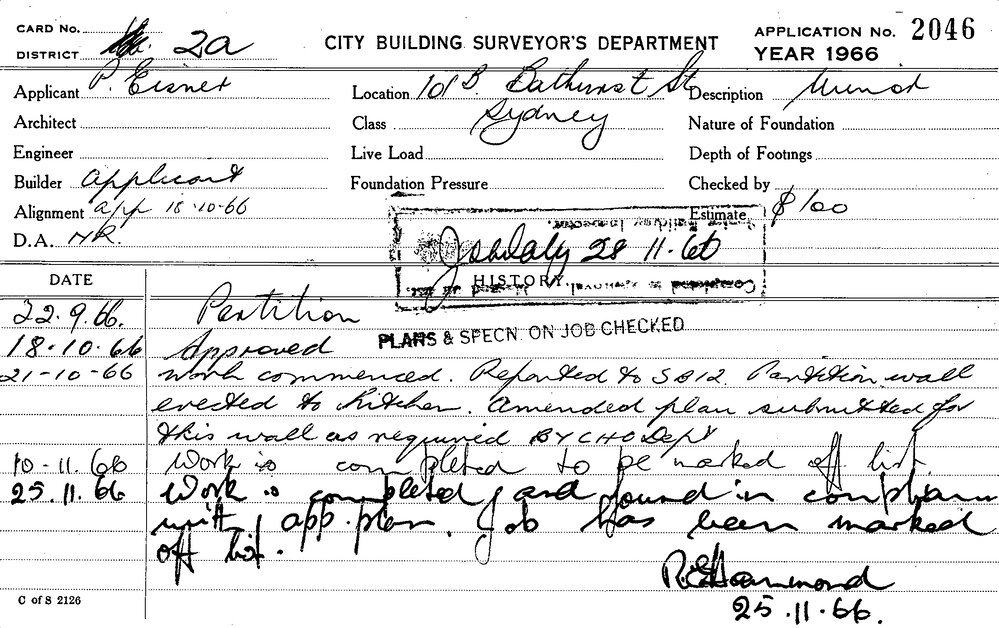 CARD No.
DISTRICT 2a
CITY BUILDING SURVEYOR'S DEPARTMENT
APPLICATION No. 2046
YEAR 1966
Applicant P. Eisner
Location 101B. Bathurst St
Sydney
Description Minor
Architect
Class
Nature of Foundation
Engineer
Live Load
Depth of Footings
Builder applicant
Foundation Pressure
Checked by
Alignment app 18-10-66
Estimate $100
D.A. NR.
28 11.66
DATE
HISTORY
22.9.66. Partition
PLANS & SPECN. ON JOB CHECKED
18.10.66 Approved
21-10-66 Work commenced. Reported to SB12. Partition wall
erected to Kitchen. Amended plan submitted for
this wall as required BY CHO Dept
10-11.66 Work is completed to be marked off list
25.11.66 Work is completed and found in complianc
with app. plan. Job has been marked
off list.
R.E Hammond
25.11.66.
C of S 2126